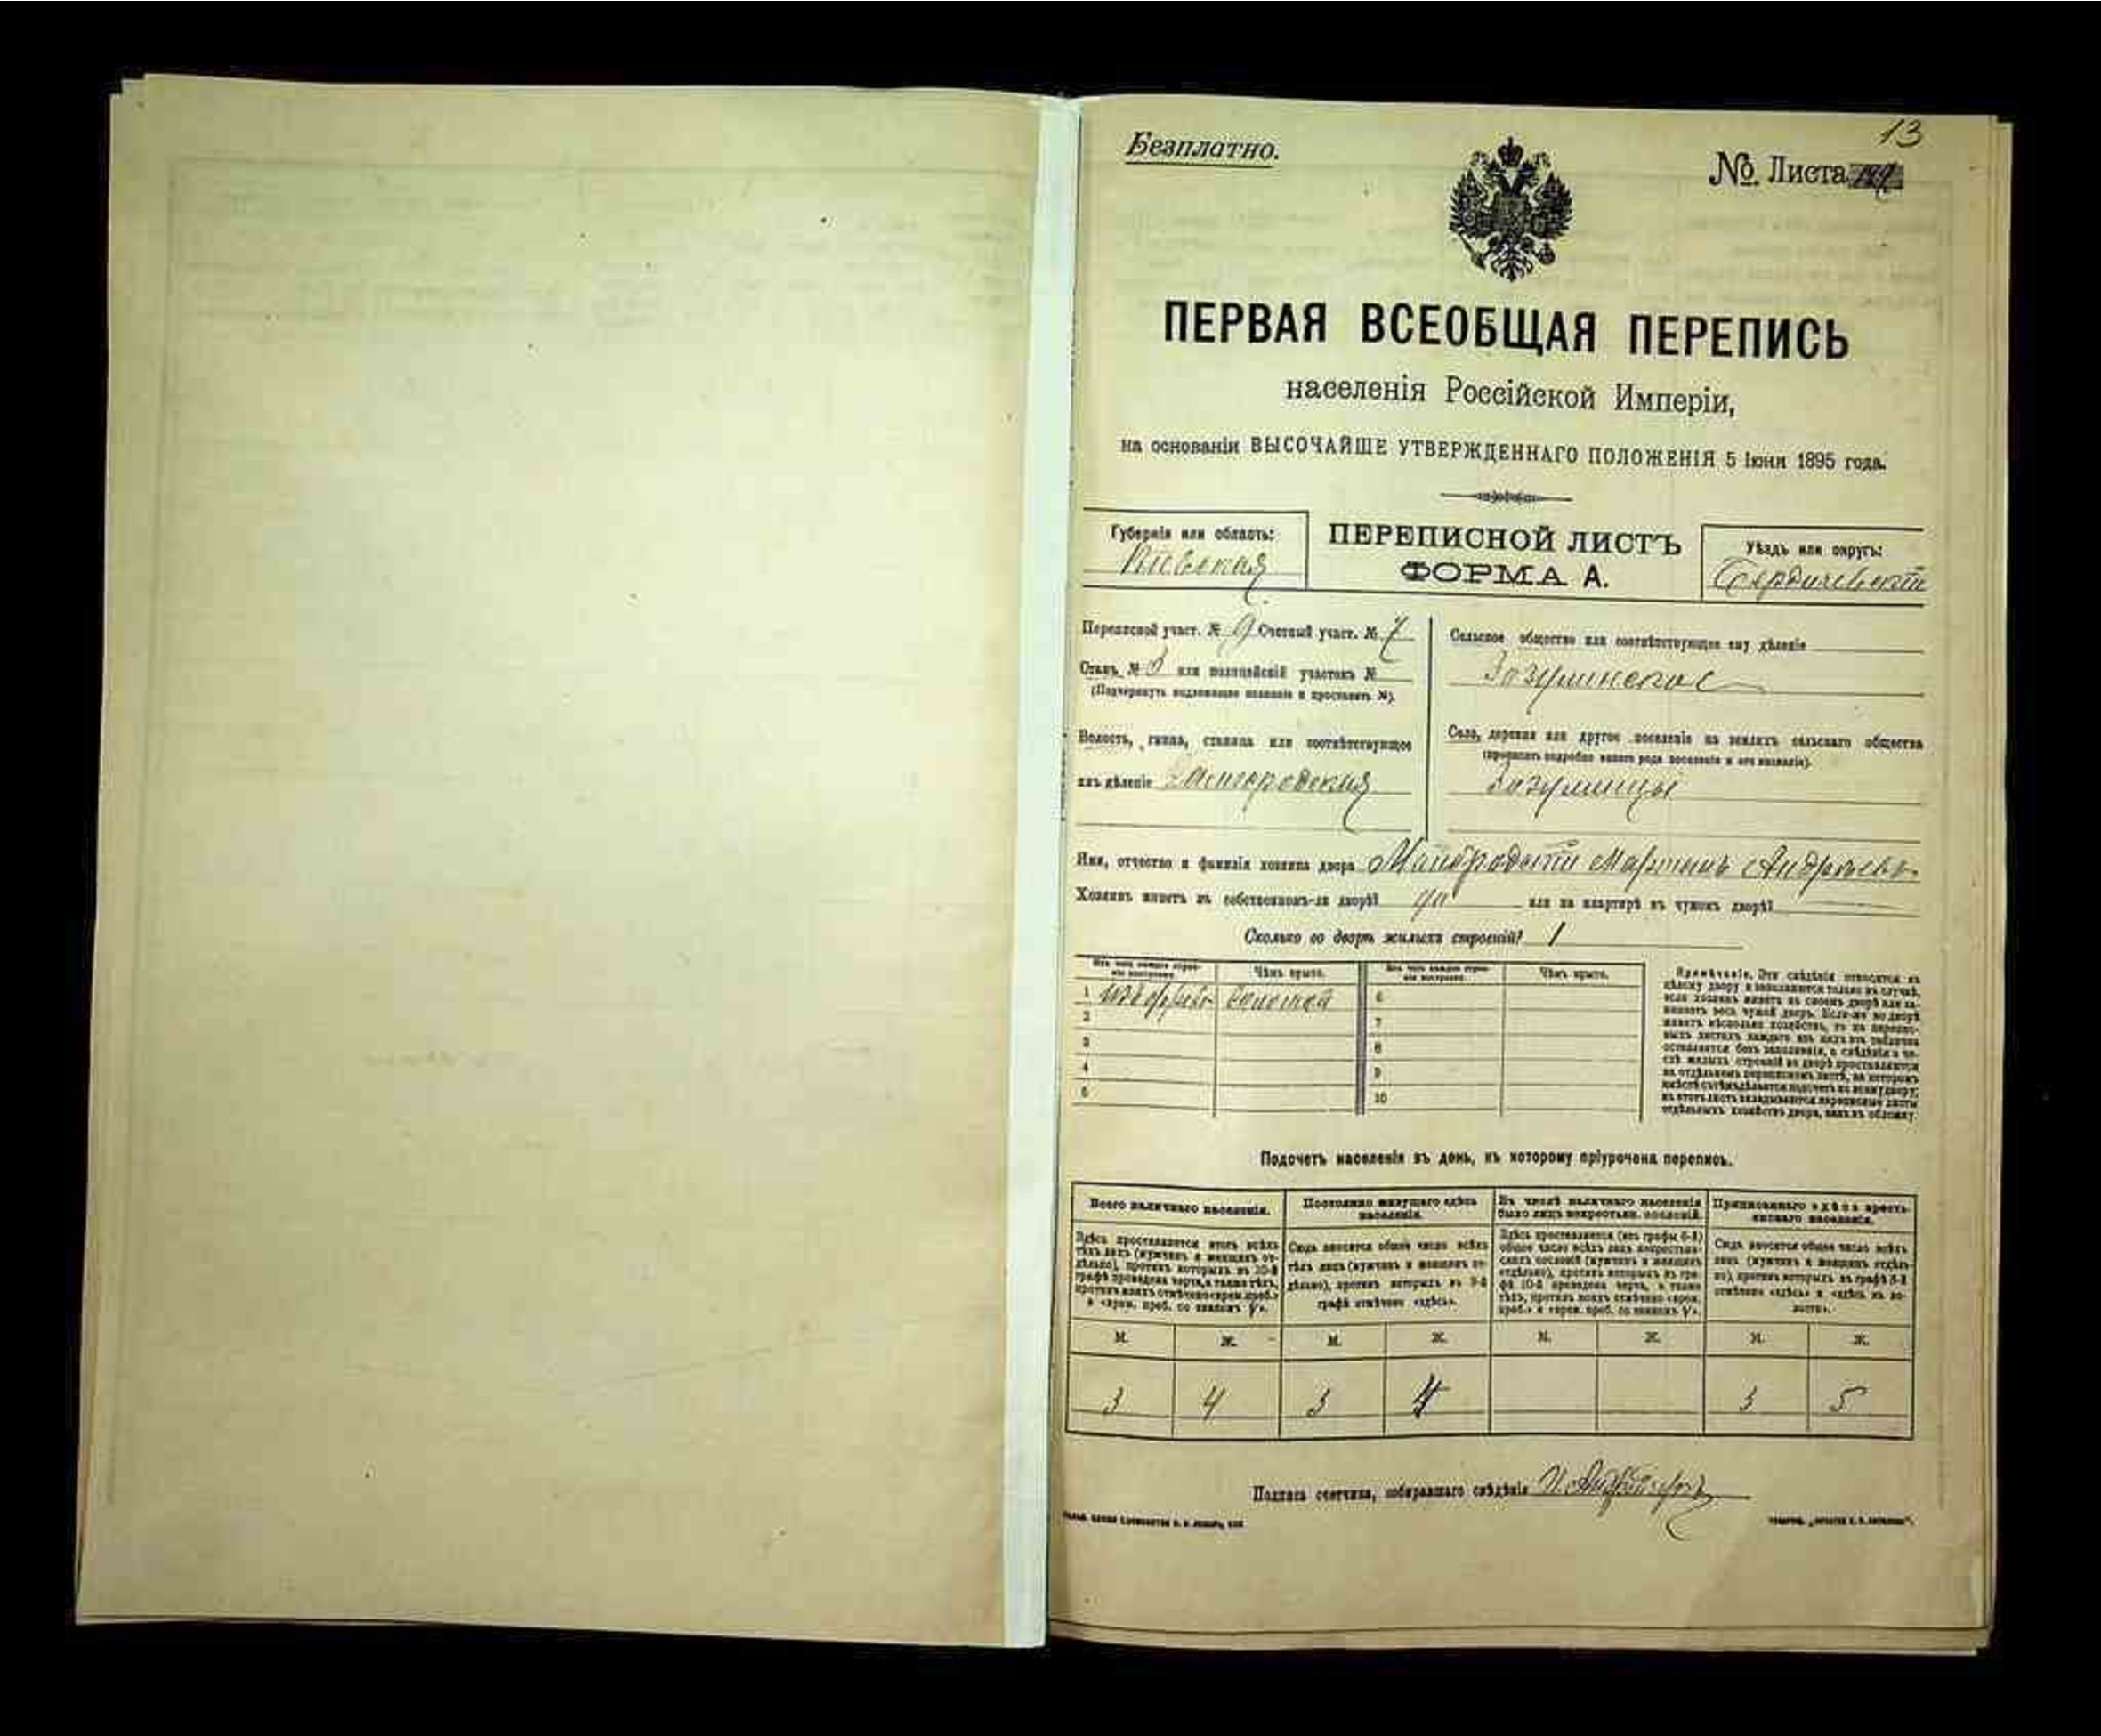 13
Безплатно.
№ Листа
ПЕРВАЯ ВСЕОБЩАЯ ПЕРЕПИСЬ
населенія Россійской Имперіи,
на основаніи ВЫСОЧАЙШЕ УТВЕРЖДЕННАГО ПОЛОЖЕНІЯ 5 Іюня 1895 года.
Губернія или область:
Кіевская
ПЕРЕПИСНОЙ ЛИСТЪ
ФОРМА А.
Уѣздъ или округъ:
Бердичевскій
Переписной участ. № 9 Счетный участ. № 7
Станъ № 3 или полицейскій участокъ №
(Подчеркнуть надлежащее названіе и проставить №).
Волость, гмина, станица или соотвѣтствующее
имъ дѣленіе
Сельское общество или соотвѣтствующее ему дѣленіе
Зозулинское
Село, деревня или другое поселеніе на земляхъ сельскаго общества
(прописать подробно какого рода поселеніе и его названіе).
Имя, отчество и фамилія хозяина двора
Хозяинъ живетъ въ собственномъ-ли дворѣ? да или на квартирѣ въ чужомъ дворѣ?
Сколько во дворѣ жилыхъ строеній? 1
Изъ чего каждое строе-
ніе построено.
Чѣмъ крыто.
Изъ чего каждое строе-
ніе построено.
Чѣмъ крыто.
1 соломой 6
2 7
3 8
4 9
5 10
Примѣчаніе. Эти свѣдѣнія относятся къ
цѣлому двору и заполняются только въ случаѣ,
если хозяинъ живетъ въ своемъ дворѣ или за-
нимаетъ весь чужой дворъ. Если-же во дворѣ
живетъ нѣсколько хозяйствъ, то на перепис-
ныхъ листахъ каждаго изъ нихъ эта табличка
оставляется безъ заполненія, а свѣдѣнія о чи-
слѣ жилыхъ строеній во дворѣ проставляются
на отдѣльномъ переписномъ листѣ, на которомъ
вмѣстѣ съ тѣмъ дѣлается подсчетъ по всему двору;
въ этотъ листъ вкладываются переписные листы
отдѣльныхъ хозяйствъ двора, какъ въ обложку.
Подсчетъ населенія въ день, къ которому пріурочена перепись.
Всего наличнаго населенія.
Здѣсь проставляется итогъ всѣхъ
тѣхъ лицъ (мужчинъ и женщинъ от-
дѣльно), противъ которыхъ въ 10-й
графѣ проведена черта, а также тѣхъ,
противъ коихъ отмѣчено «врем. преб.»
и «врем. преб. со знакомъ V».
Постоянно живущаго здѣсь
населенія.
Сюда вносится общее число всѣхъ
тѣхъ лицъ (мужчинъ и женщинъ от-
дѣльно), противъ которыхъ въ 9-й
графѣ отмѣчено «здѣсь».
Въ числѣ наличнаго населенія
было лицъ некрестьян. сословій.
Здѣсь проставляется (изъ графы 6-й)
общее число всѣхъ лицъ некрестьян-
скихъ сословій (мужчинъ и женщинъ
отдѣльно), противъ которыхъ въ гра-
фѣ 10-й проведена черта, а также
тѣхъ, противъ коихъ отмѣчено «врем.
преб.» и «врем. преб. со знакомъ V».
Приписаннаго здѣсь кресть-
янскаго населенія.
Сюда вносится общее число всѣхъ
лицъ (мужчинъ и женщинъ отдѣль-
но), противъ которыхъ въ графѣ 8-й
отмѣчено «здѣсь» и «здѣсь въ во-
лости».
М. Ж. М. Ж. М. Ж. М. Ж.
3 4 3 4 3 5
Подпись счетчика, собиравшаго свѣдѣнія